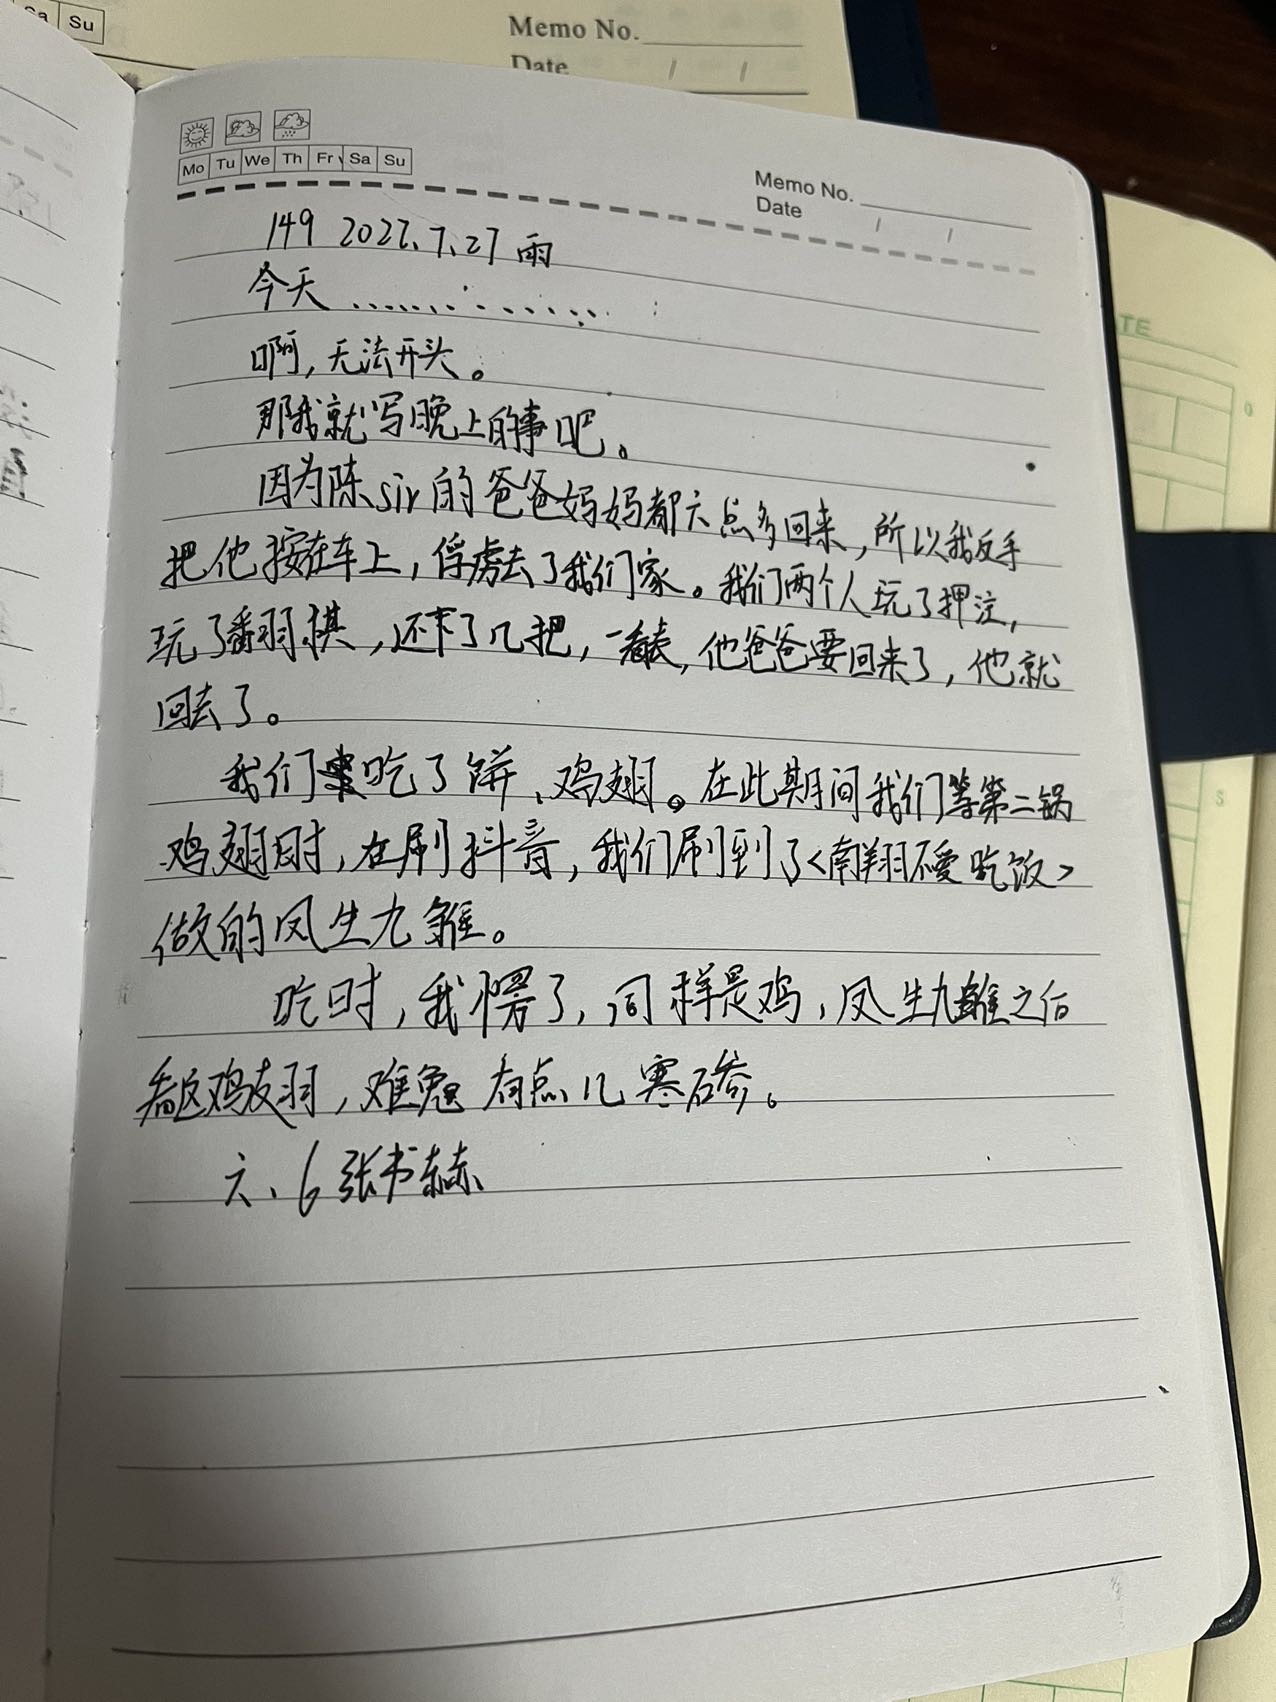 Sa Su
Memo No.
Date / /
Mo Tu We Th Fr Sa Su
Memo No.
Date / /
149 2022.7.27 雨
今天…………
啊，无法开头。
那我就写晚上的事吧。
因为陈sir的爸爸妈妈都六点多回来，所以我反手
把他按在车上，俘虏去了我们家。我们两个人玩了押注，
玩了翻羽棋，还下了几把，一看表，他爸爸要回来了，他就
回去了。
我们吃了饼、鸡翅。在此期间我们等第二锅
鸡翅时，在刷抖音，我们刷到了<南翔不爱吃饭>
做的凤生九雏。
吃时，我愣了，同样是鸡，凤生九雏之后
看这鸡翅，难免有点儿寒碜。
六、6 张书赫
TE
S